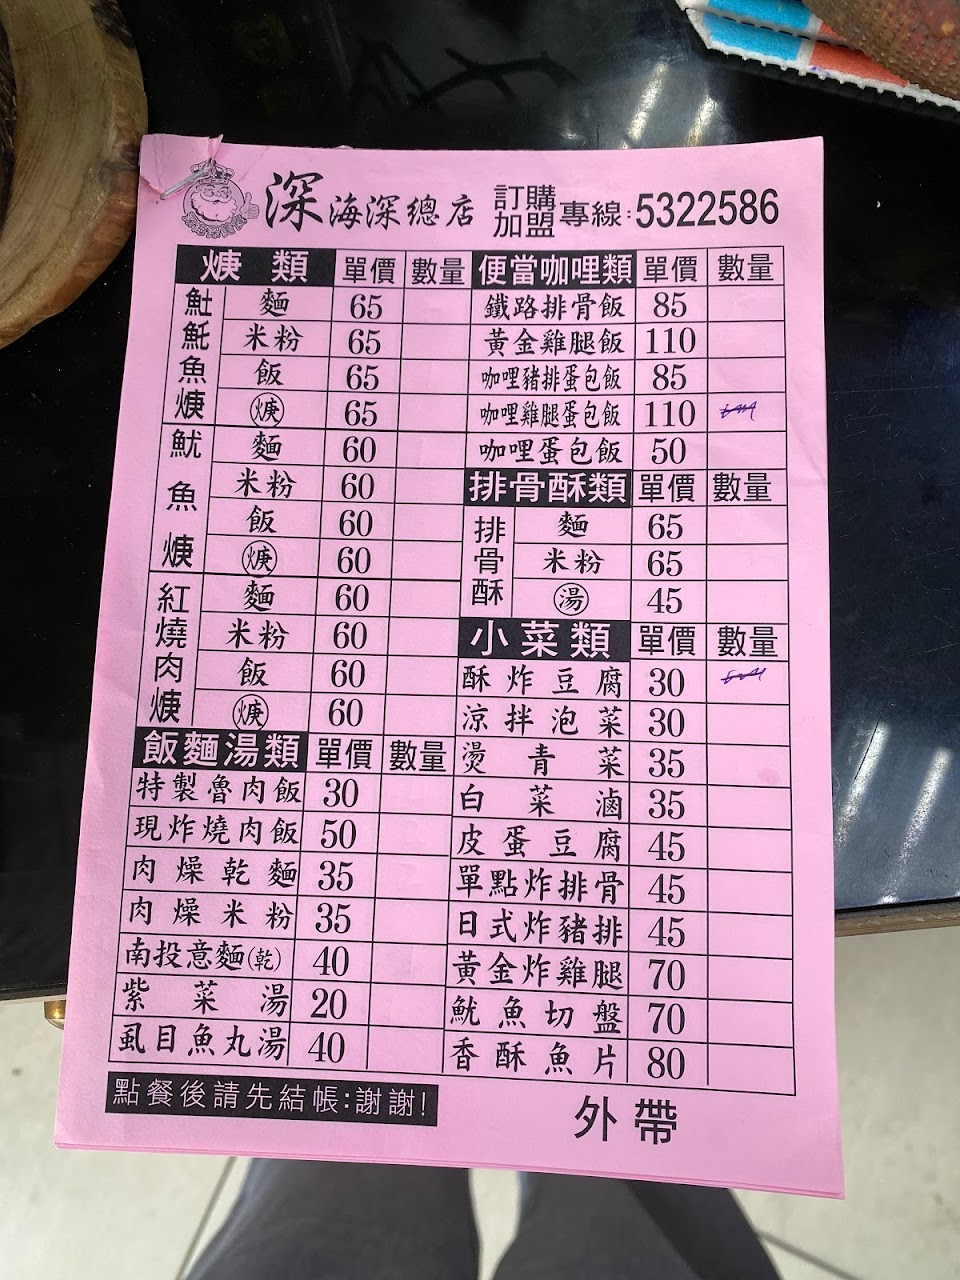 深海深總店 訂購加盟專線:5322586
焿類 單價 數量
魠魠魚焿
麵 65
米粉 65
飯 65
焿 65
魷魚焿
麵 60
米粉 60
飯 60
焿 60
紅燒肉焿
麵 60
米粉 60
飯 60
焿 60
飯麵湯類 單價 數量
特製魯肉飯 30
現炸燒肉飯 50
肉燥乾麵 35
肉燥米粉 35
南投意麵(乾) 40
紫菜湯 20
虱目魚丸湯 40
點餐後請先結帳:謝謝!
便當咖哩類 單價 數量
鐵路排骨飯 85
黃金雞腿飯 110
咖哩豬排蛋包飯 85
咖哩雞腿蛋包飯 110
咖哩蛋包飯 50
排骨酥類 單價 數量
排骨酥
麵 65
米粉 65
湯 45
小菜類 單價 數量
酥炸豆腐 30
涼拌泡菜 30
燙青菜 35
白菜滷 35
皮蛋豆腐 45
單點炸排骨 45
日式炸豬排 45
黃金炸雞腿 70
魷魚切盤 70
香酥魚片 80
外帶